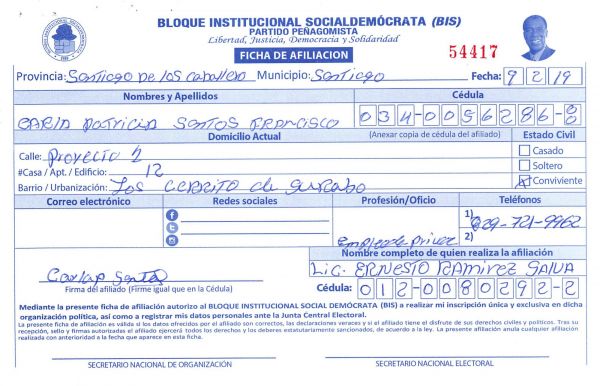 BLOQUE INSTITUCIONAL SOCIALDEMÓCRATA (BIS)
PARTIDO PEÑAGOMISTA
Libertad, Justicia, Democracia y Solidaridad
FICHA DE AFILIACION
54417
Provincia: Santiago De los caballero Municipio: Santiago Fecha: 9 2 19
Nombres y Apellidos Cédula
Patricia Santos Francisco 034-0056286-
Domicilio Actual (Anexar copia de cédula del afiliado) Estado Civil
Calle: Proyecto 2 Casado
#Casa / Apt. / Edificio: 12 Soltero
Barrio / Urbanización: Los cerrito de gurabo Conviviente
Correo electrónico Redes sociales Profesión/Oficio Teléfonos
1) 829-721-9962
Empleada Privaz 2)
Nombre completo de quien realiza la afiliación
Lic. ERNESTO RAMIREZ
Firma del afiliado (Firme igual que en la Cédula) Cédula: 012-0080292-2
Mediante la presente ficha de afiliación autorizo al BLOQUE INSTITUCIONAL SOCIAL DEMÓCRATA (BIS) a realizar mi inscripción única y exclusiva en dicha
organización política, así como a registrar mis datos personales ante la Junta Central Electoral.
La presente ficha de afiliación es válida si los datos ofrecidos por el afiliado son correctos, las declaraciones veraces y si el afiliado tiene el disfrute de sus derechos civiles y políticos. Tras su
recepción, sello y firmas autorizadas el afiliado ejercerá todos los derechos y los deberes estatutariamente sancionados, de acuerdo a la ley. La presente afiliación anula cualquier afiliación
realizada con anterioridad a la fecha que aparece en esta ficha.
SECRETARIO NACIONAL DE ORGANIZACIÓN SECRETARIO NACIONAL ELECTORAL